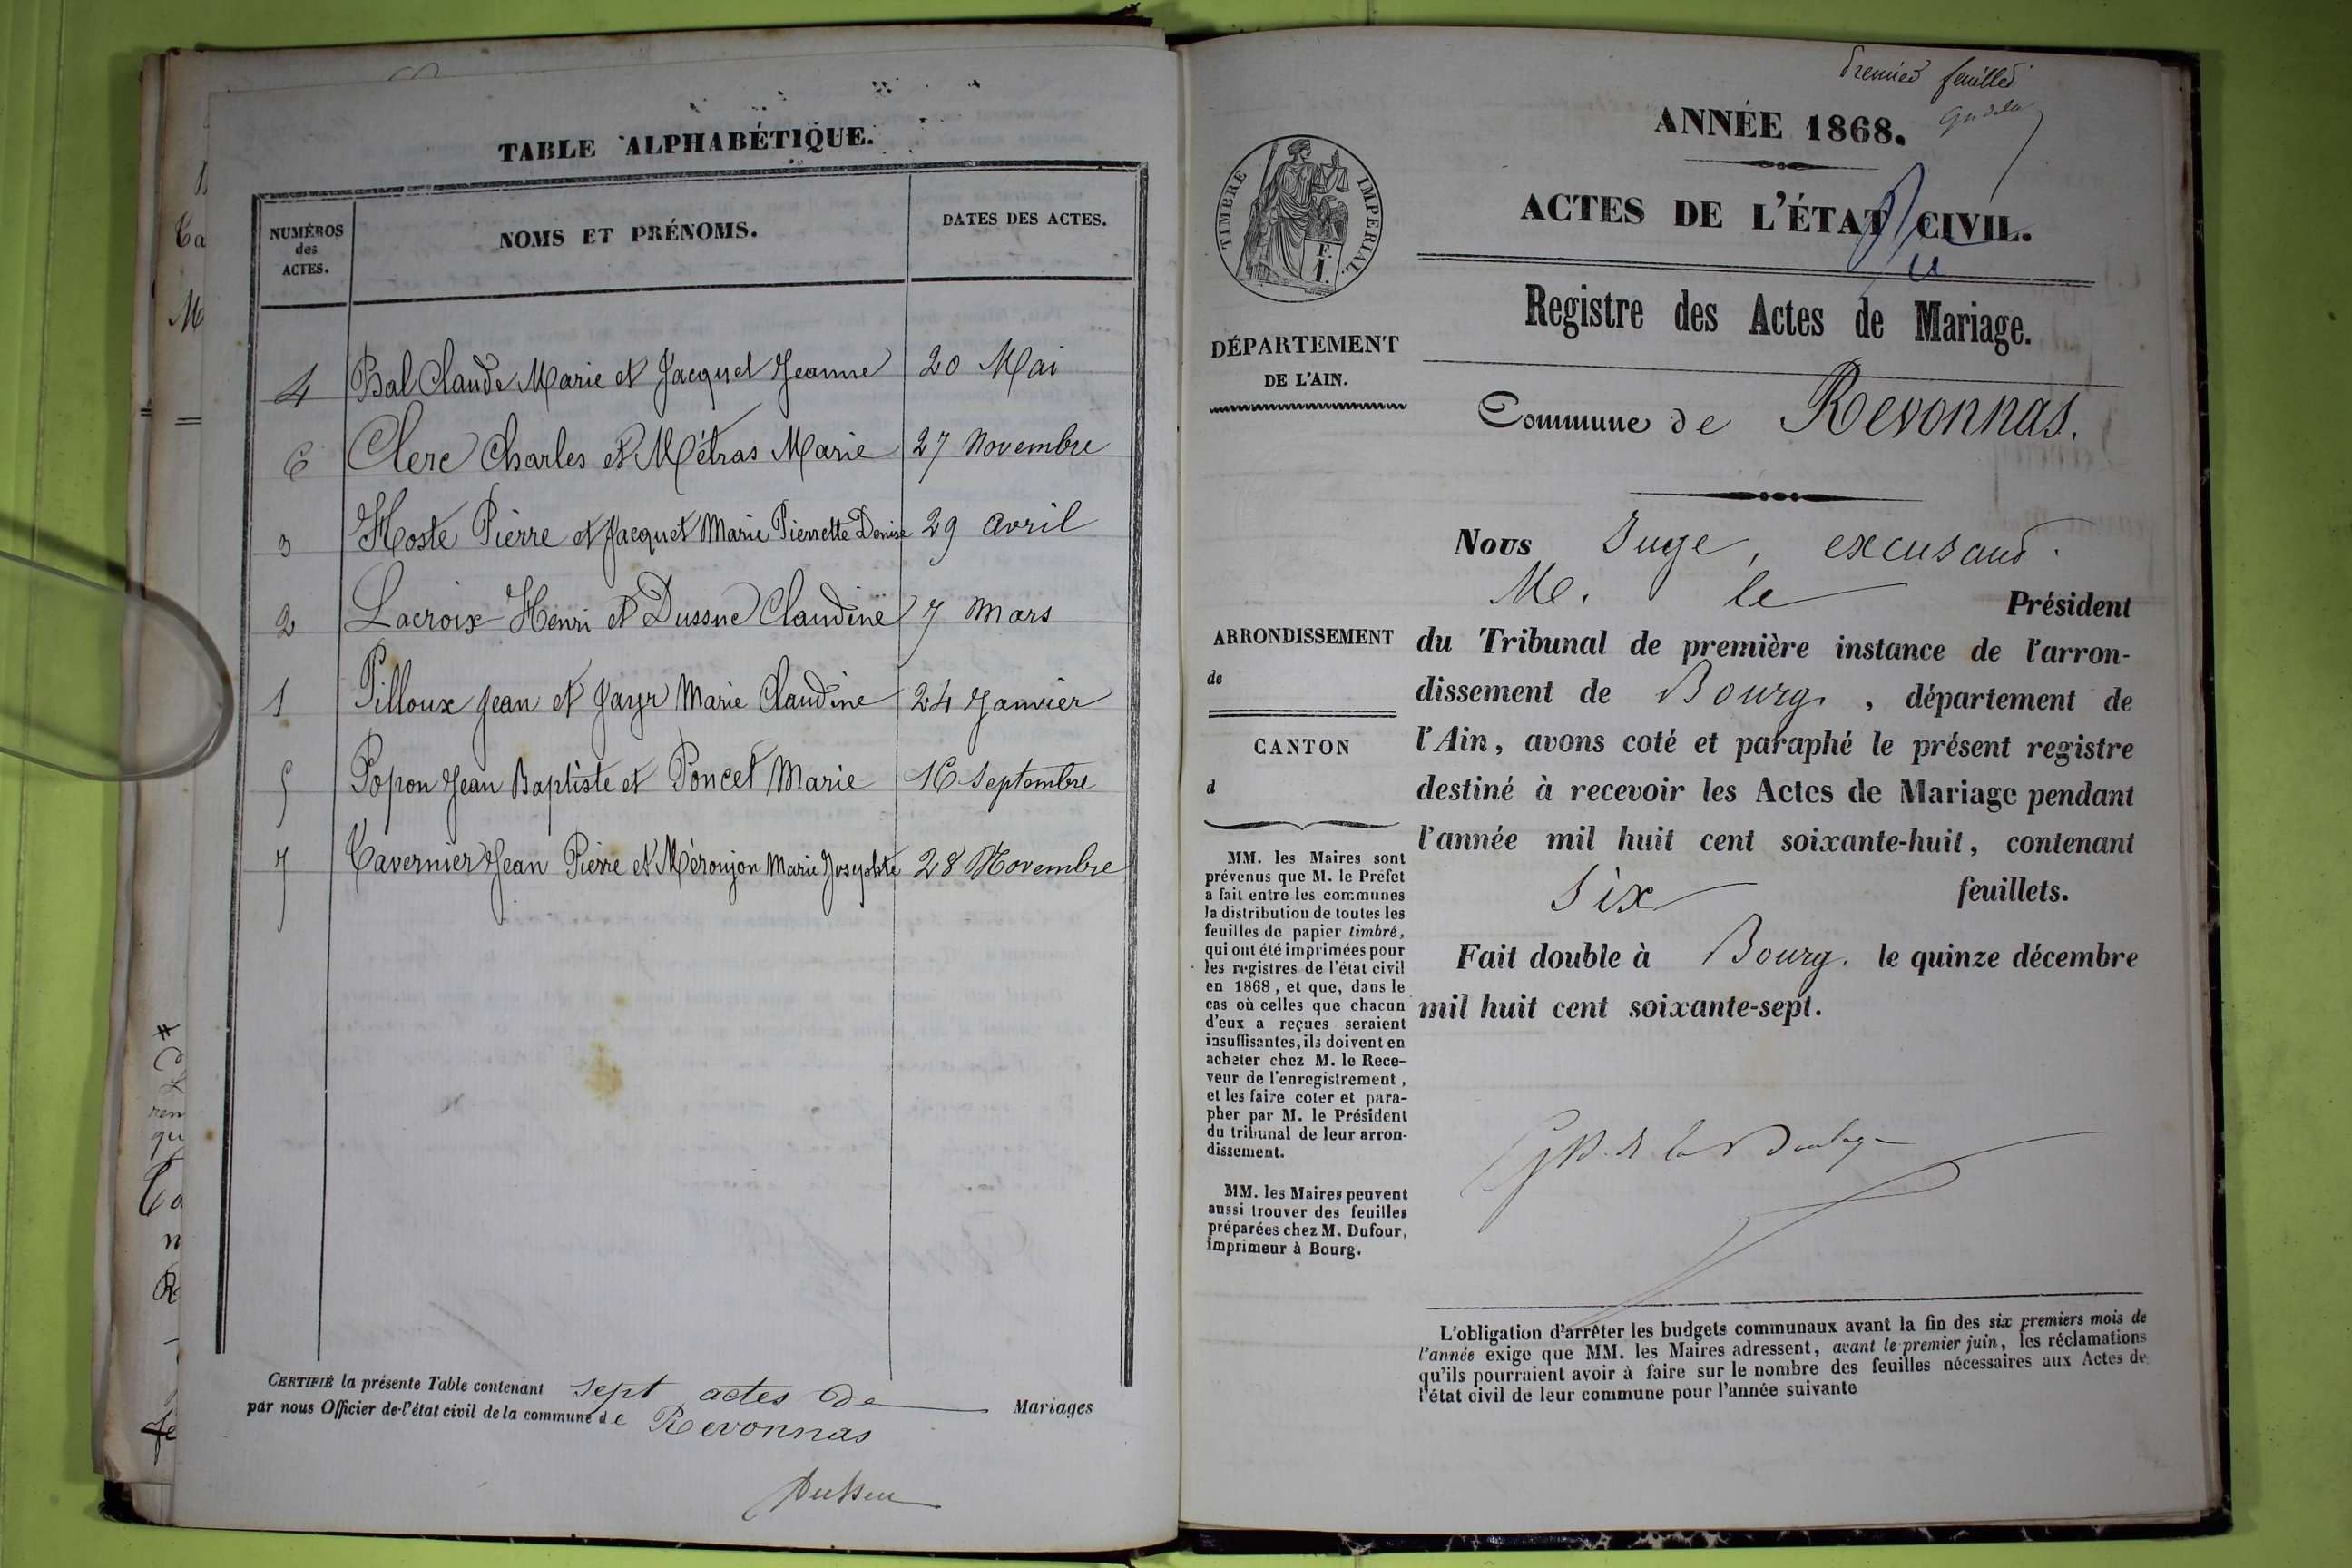 TABLE ALPHABÉTIQUE.
NUMÉROS
des
ACTES.
NOMS ET PRÉNOMS.
DATES DES ACTES.
4 Bal Claude Marie et Jacquet Jeanne 20 Mai
6 Clerc Charles et Métras Marie 27 Novembre
3 Hoste Pierre et Jacquet Marie Pierrette Denise 29 avril
2 Lacroix Henri et Dussuc Claudine 7 Mars
1 Pilloux Jean et Jayr Marie Claudine 24 Janvier
5 Popon Jean Baptiste et Poncet Marie 16 Septembre
7 Tavernier Jean Pierre et Méronjon Marie Josephte 28 Novembre
CERTIFIÉ la présente Table contenant sept actes de Mariages
par nous Officier de l'état civil de la commune de Revonnas
Premier feuillet
ANNÉE 1868.
ACTES DE L'ÉTAT CIVIL.
Registre des Actes de Mariage.
Commune de Revonnas.
TIMBRE IMPÉRIAL.
DÉPARTEMENT
DE L'AIN.
ARRONDISSEMENT
de
CANTON
d
MM. les Maires sont
prévenus que M. le Préfet
a fait entre les communes
la distribution de toutes les
feuilles de papier timbré,
qui ont été imprimées pour
les registres de l'état civil
en 1868, et que, dans le
cas où celles que chacun
d'eux a reçues seraient
insuffisantes, ils doivent en
acheter chez M. le Rece-
veur de l'enregistrement,
et les faire coter et para-
pher par M. le Président
du tribunal de leur arron-
dissement.
MM. les Maires peuvent
aussi trouver des feuilles
préparées chez M. Dufour,
imprimeur à Bourg.
Nous Juge, excusant
M. le Président
du Tribunal de première instance de l'arron-
dissement de Bourg, département de
l'Ain, avons coté et paraphé le présent registre
destiné à recevoir les Actes de Mariage pendant
l'année mil huit cent soixante-huit, contenant
six feuillets.
Fait double à Bourg. le quinze décembre
mil huit cent soixante-sept.
L'obligation d'arrêter les budgets communaux avant la fin des six premiers mois de
l'année exige que MM. les Maires adressent, avant le premier juin, les réclamations
qu'ils pourraient avoir à faire sur le nombre des feuilles nécessaires aux Actes de
l'état civil de leur commune pour l'année suivante